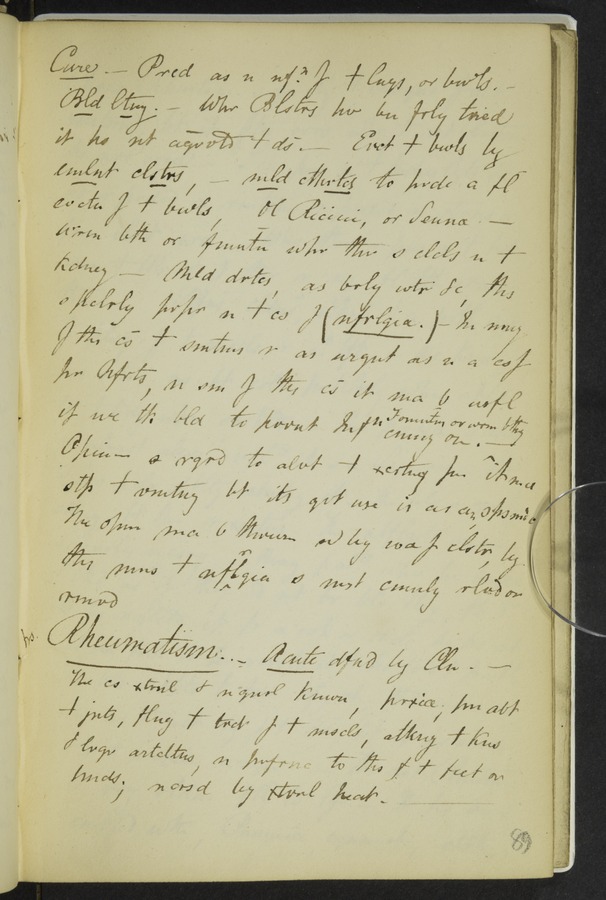 Cure — Pred as n nfn. f + lngs, or bwls. —
Bld ltng. — Whr Blstrs hv bn frly tried
it hs nt agrvtd + ds. — Evct + bwls by
emlnt clstrs, — mld cthrtcs to prdc a fl
evctn f + bwls, Ol Ricini, or Senna —
wrm bth or fmntn whr thr s clcls n +
Kdney — Mld drtcs, as brly wtr &c, ths
s pclrly prpr n + cs f (nfrlgia.) — In mny
f ths cs + smtms r as urgnt as n a cs f
pr Nfrts, n sm f ths cs it ma b usfl
if we th bld to prvnt Infn fomntn or wrm bth
cmng on. —
Opium s rgrd to alvt + pn it ma
stp + vmtng bt its grt use is as an spsmdc
The opm ma b thrwn n by wa f clstr, by
ths mns + nfrlgia s mst cmnly rlvd or
rmvd
Rheumatism. — Acute dfnd by Clln. —
The cs xtrnl & n gnrl knwn, prxia, pn abt
+ jnts, flng + trck f + mscls, attkng + kns
& lrgr artcltns, n prfrnc to ths f + feet or
hnds; ncrsd by xtrnl heat. —
89